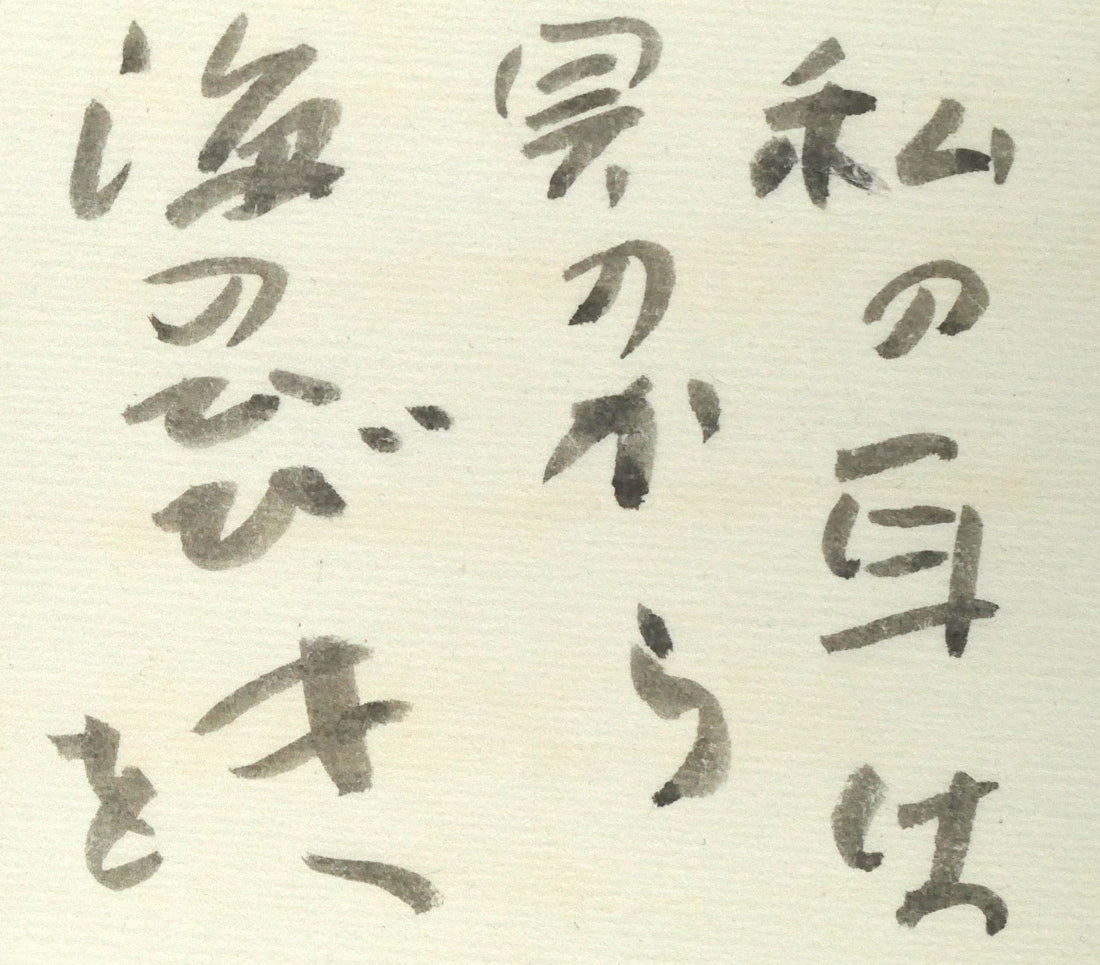 私の耳は
貝のから
海のひびきを